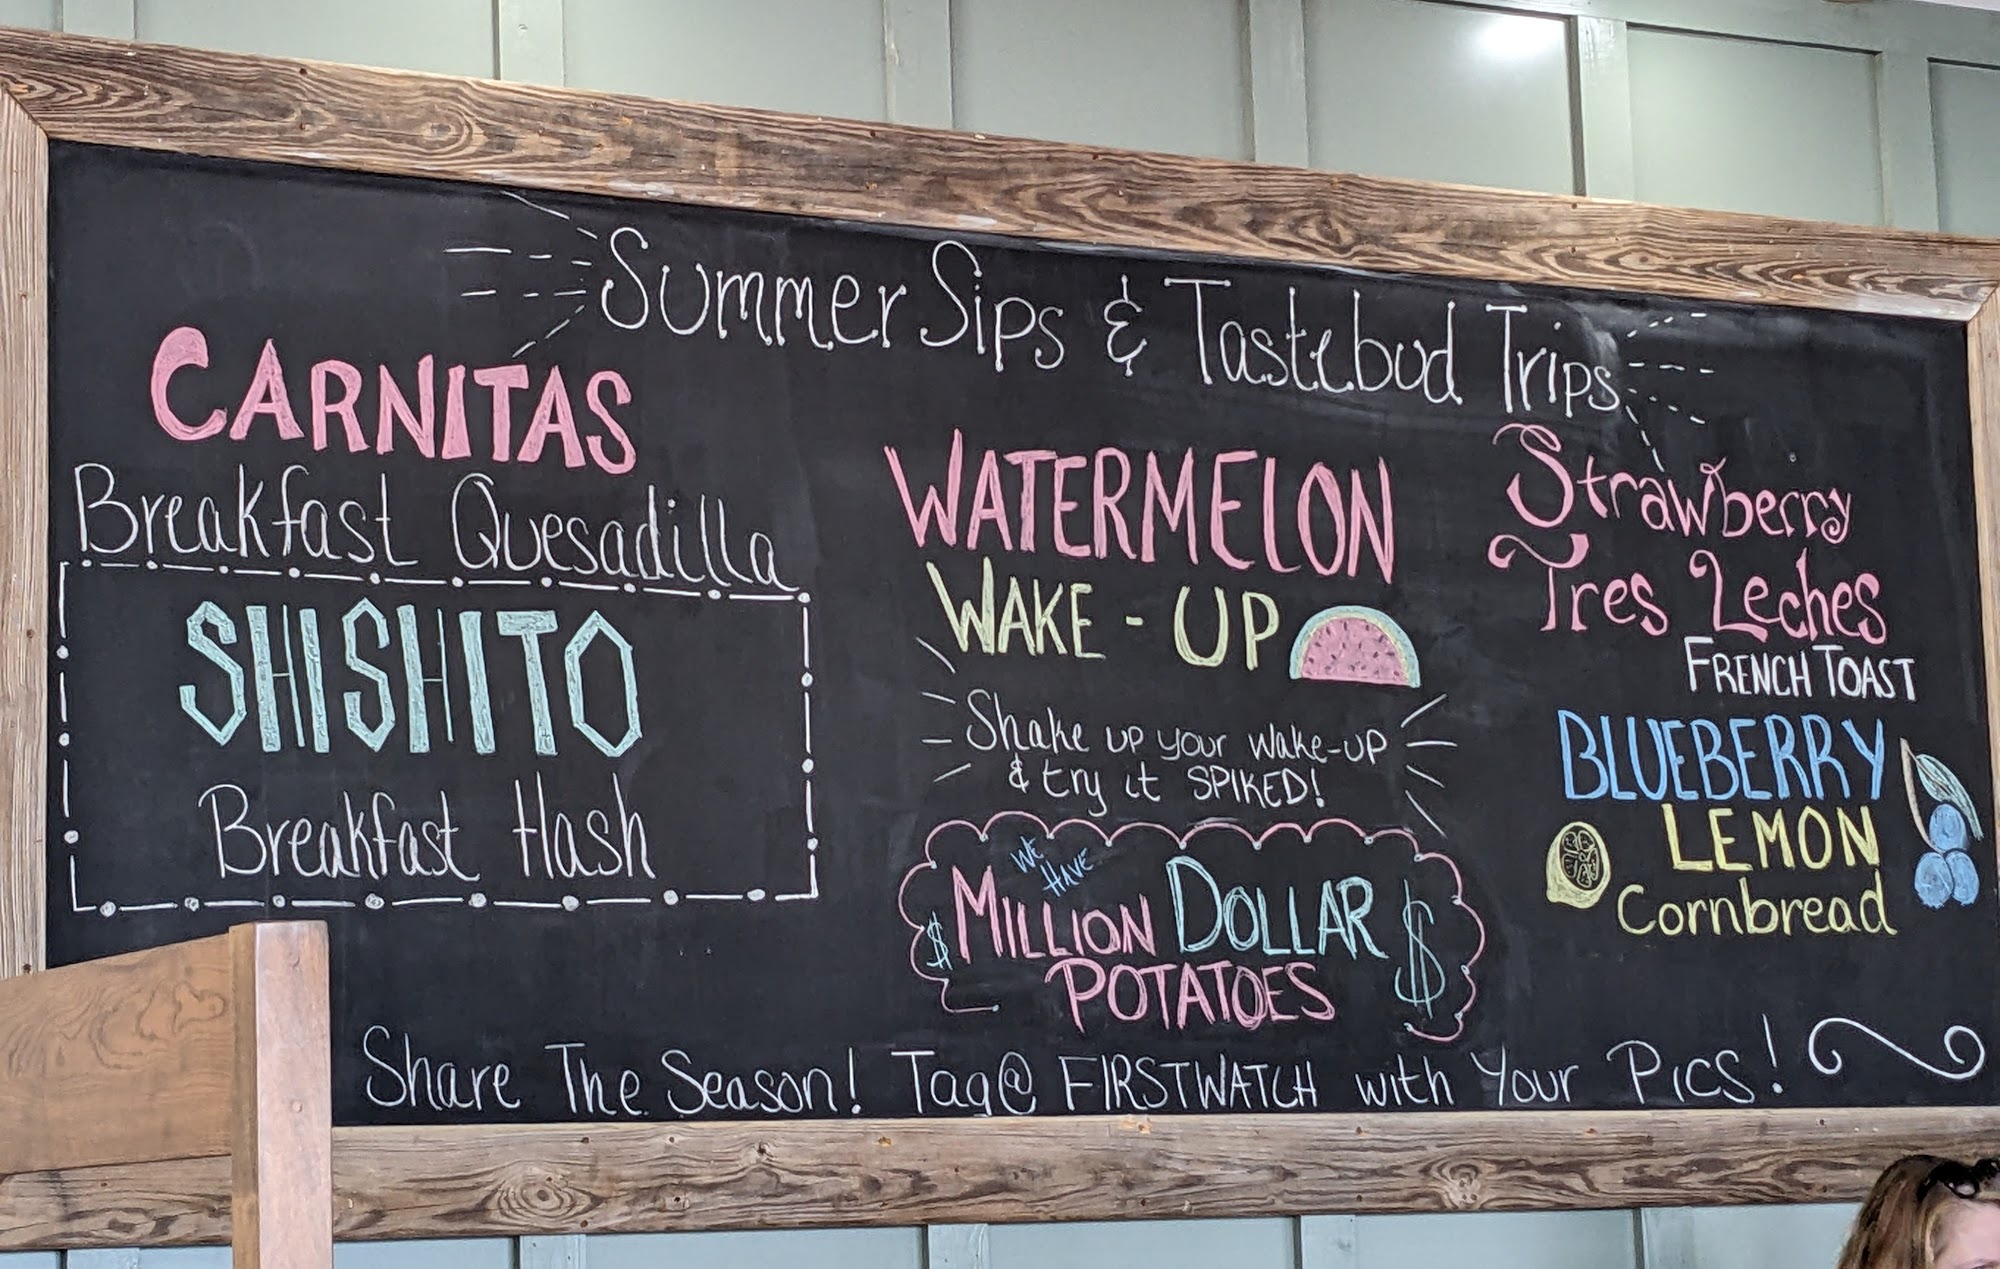 Summer Sips & Tastebud Trips
CARNITAS
Breakfast Quesadilla
SHISHITO
Breakfast Hash
WATERMELON
WAKE-UP
Shake up your wake-up
& try it SPIKED!
WE
HAVE
$ MILLION DOLLAR $
POTATOES
Strawberry
Tres Leches
FRENCH TOAST
BLUEBERRY
LEMON
Cornbread
Share The Season! Tag@ FIRSTWATCH with Your Pics!